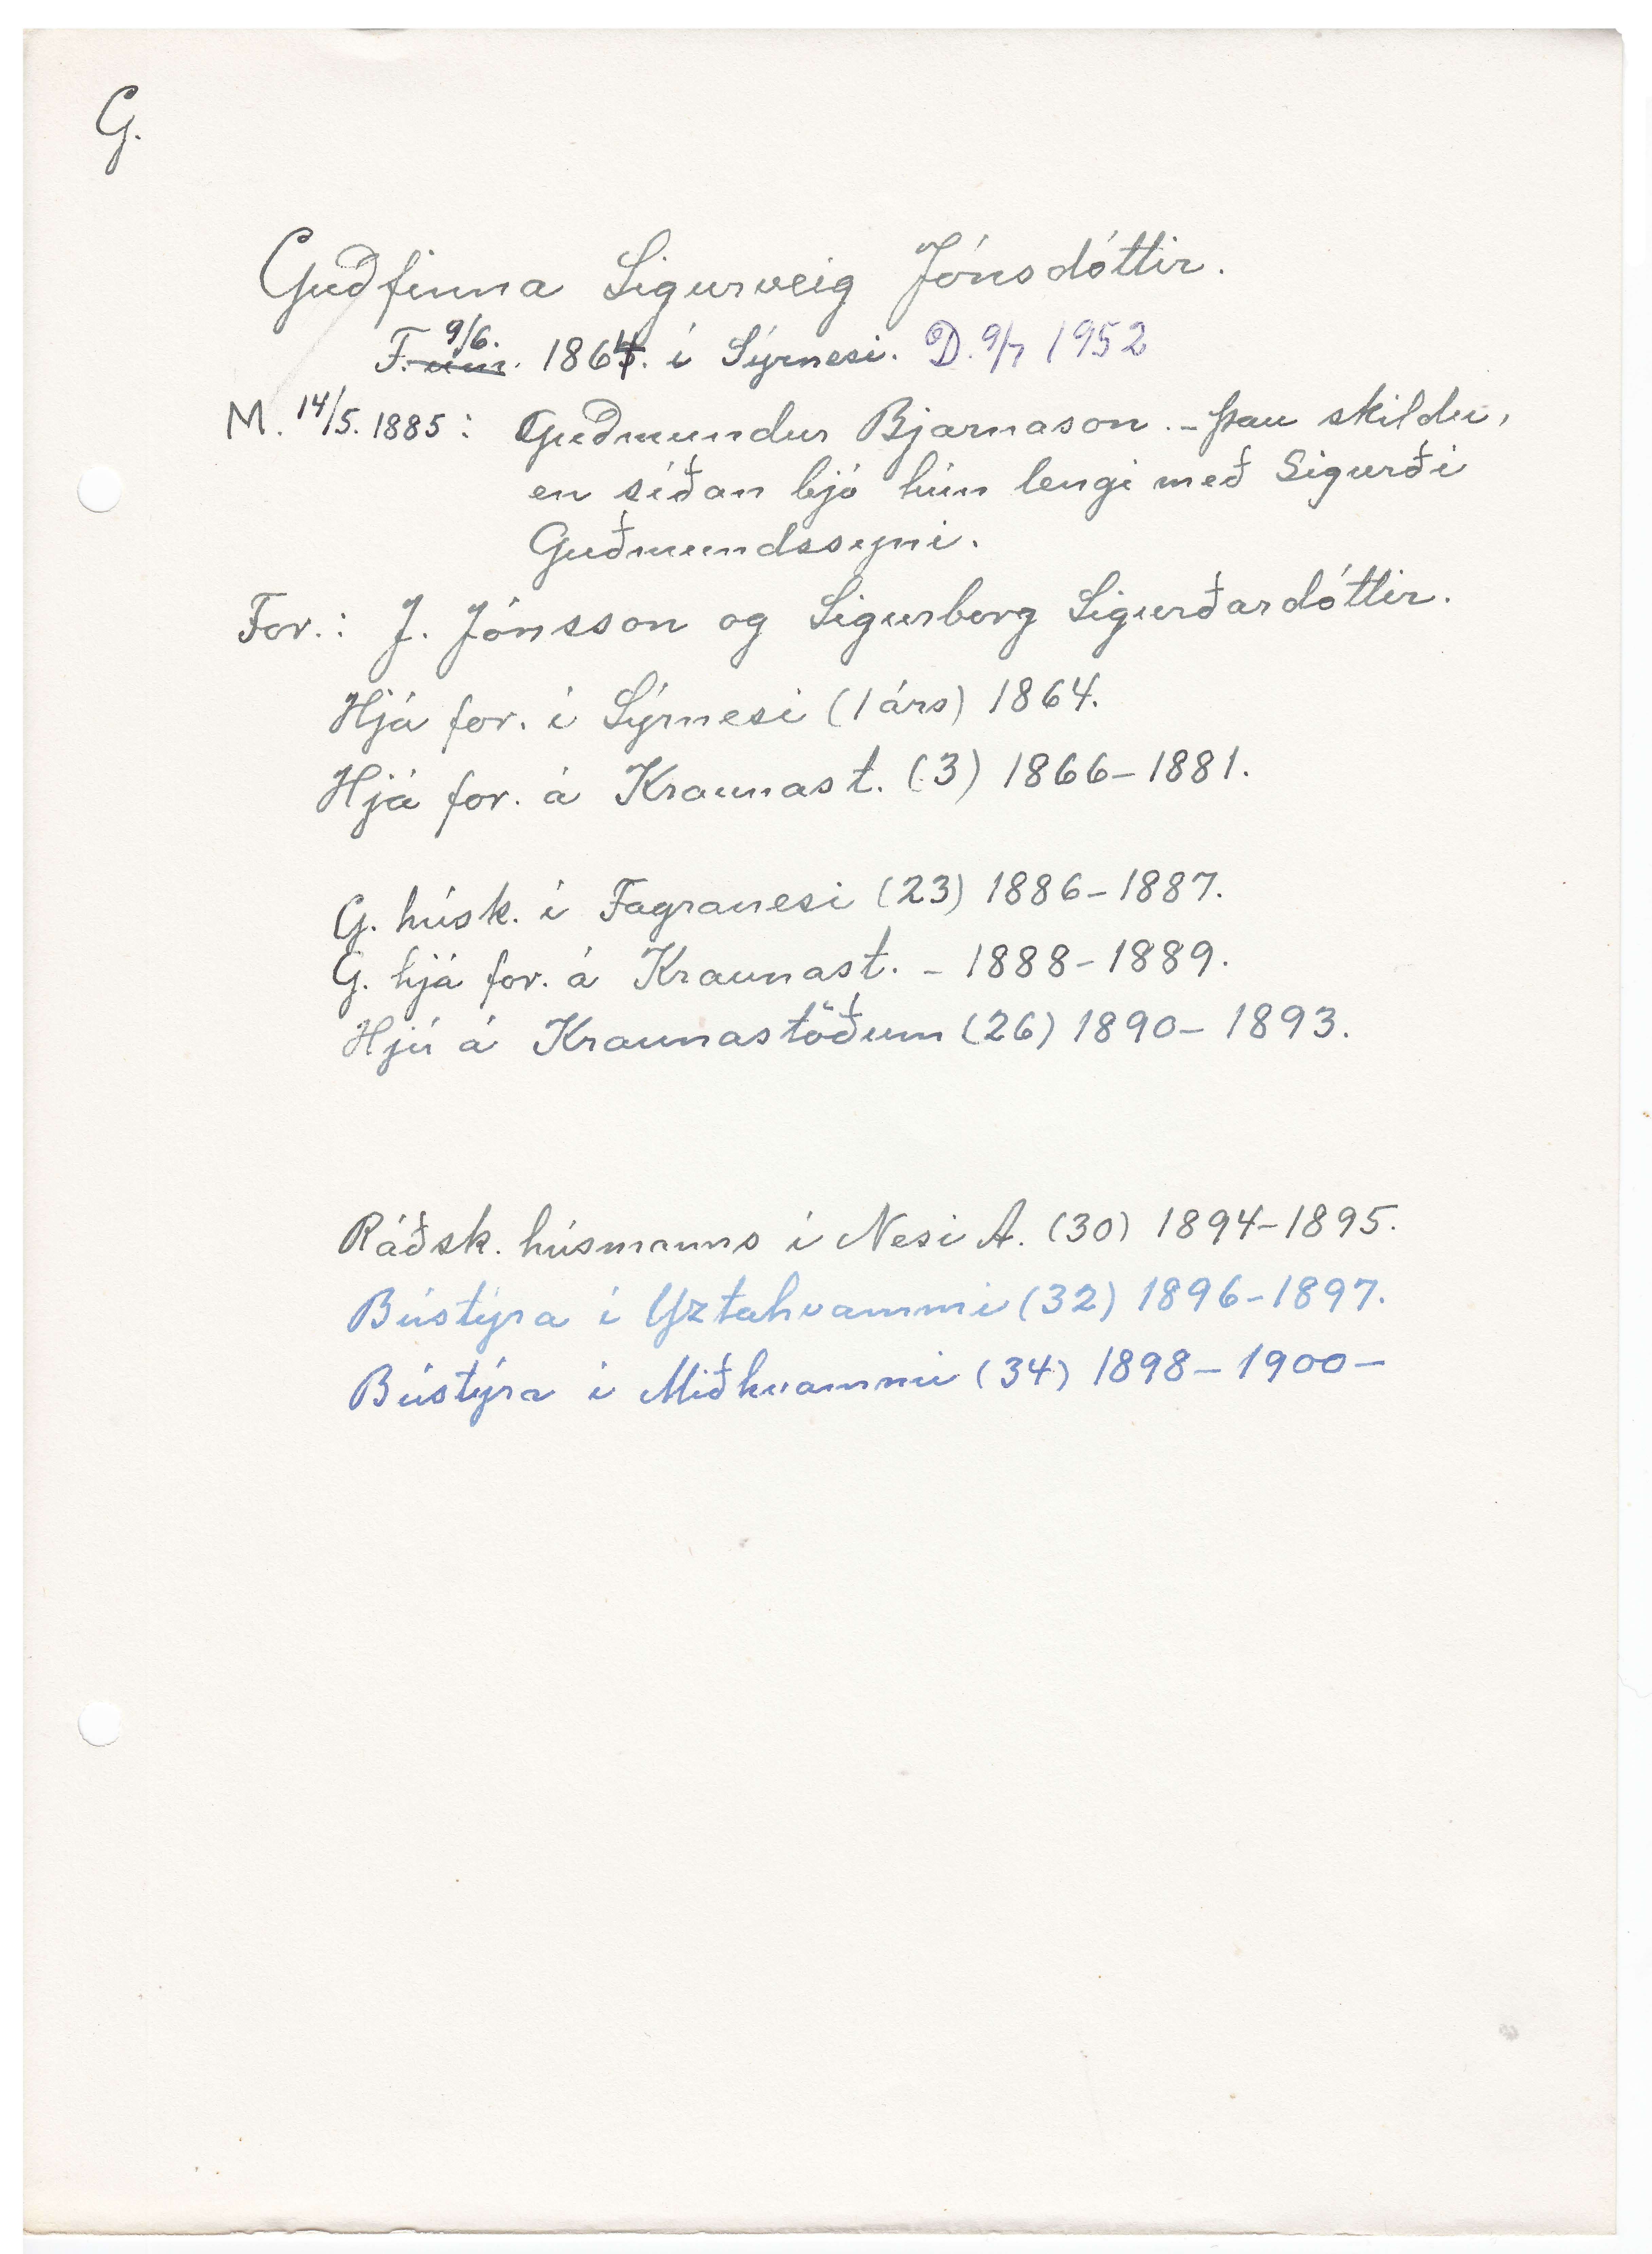 G.
Guðfinna Sigurveig Jónsdóttir.
F. 9/6. 1864. í Sýrnesi. D. 9/7 1952
M. 14/5. 1885: Guðmundur Bjarnason. - Þau skildu,
en síðan bjó hún lengi með Sigurði
Guðmundssyni.
For.: J. Jónsson og Sigurborg Sigurðardóttir.
Hjá for. í Sýrnesi (1 árs) 1864.
Hjá for. á Kraunast. (3) 1866-1881.
G. húsk. í Fagranesi (23) 1886-1887.
G. hjá for. á Kraunast. - 1888-1889.
Hjú á Kraunastöðum (26) 1890-1893.
Ráðsk. húsmanns í Nesi A. (30) 1894-1895.
Bústýra í Yztahvammi (32) 1896-1897.
Bústýra í Miðhvammi (34) 1898-1900-